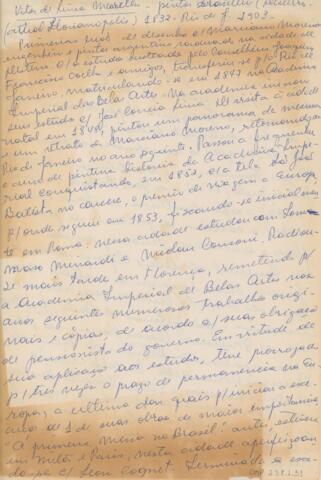 Vitor de Lima Meirelles - pintor brasileiro (Desterro
(atual Florianópolis) 1832 - Rio de J. 1903.
Primeiras aulas de desenho c/ Marciano Moreno
engenheiro e pintor argentino radicado na cidade de
c/o estudo custeado pelo Conselheiro Jeronymo
Francisco Coelho e amigos, transferiu-se p/ o Rio de
Janeiro, matriculando-se em 1847 na Academia
Imperial das Belas Artes. Na academia iniciou
seus estudos c/ José Correia Lima. Em visita à cidade
natal em 1849, pintou um panorama da mesma
e um retrato de Marciano Moreno, retornando ao
Rio de Janeiro no ano seguinte. Passou a frequentar
o curso de pintura histórica da Academia Impe-
rial conquistando, em 1852, c/ a tela São João
Batista no cárcere, o prêmio de viagem à Europa
p/ onde seguiu em 1853, fixando-se inicialmen-
te em Roma: nessa cidade estudou com Tom-
maso Minardi e Nicolau Consoni. Radicou-
se mais tarde em Florença, remetendo p/
a Academia Imperial de Belas Artes nos
anos seguintes numerosos trabalhos origi-
nais e cópias, de acordo c/ suas obrigações
de pensionista do governo. Em virtude de
sua aplicação aos estudos, teve prorrogado
p/ três vezes o prazo de permanência na Eu-
ropa, a última das quais p/ iniciar a exe-
cução de 1 de suas obras de maior importância
A primeira missa no Brasil: antes esteve
em Milão e Paris, nesta cidade aperfeiçoan
do-se c/ Léon Cogniet. Terminada a exe-
238.1.31